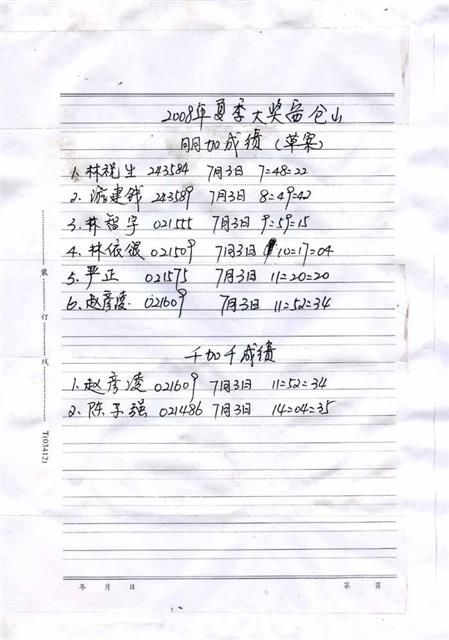 2008年夏季大奖番仓山
明加成绩（草案）
1. 林祝生 243584 7月3日 7=48=22
2. 游建钱 243589 7月3日 8=49=42
3. 林智宇 021555 7月3日 9=59=15
4. 林依银 021509 7月3日 10=17=04
5. 严正 021575 7月3日 11=20=20
6. 赵彦凌 021609 7月3日 11=52=34
千加千成绩
1. 赵彦凌 021609 7月3日 11=52=34
2. 陈子强 021486 7月3日 14=04=35
装
订
线
T(03412)
年 月 日 第 页